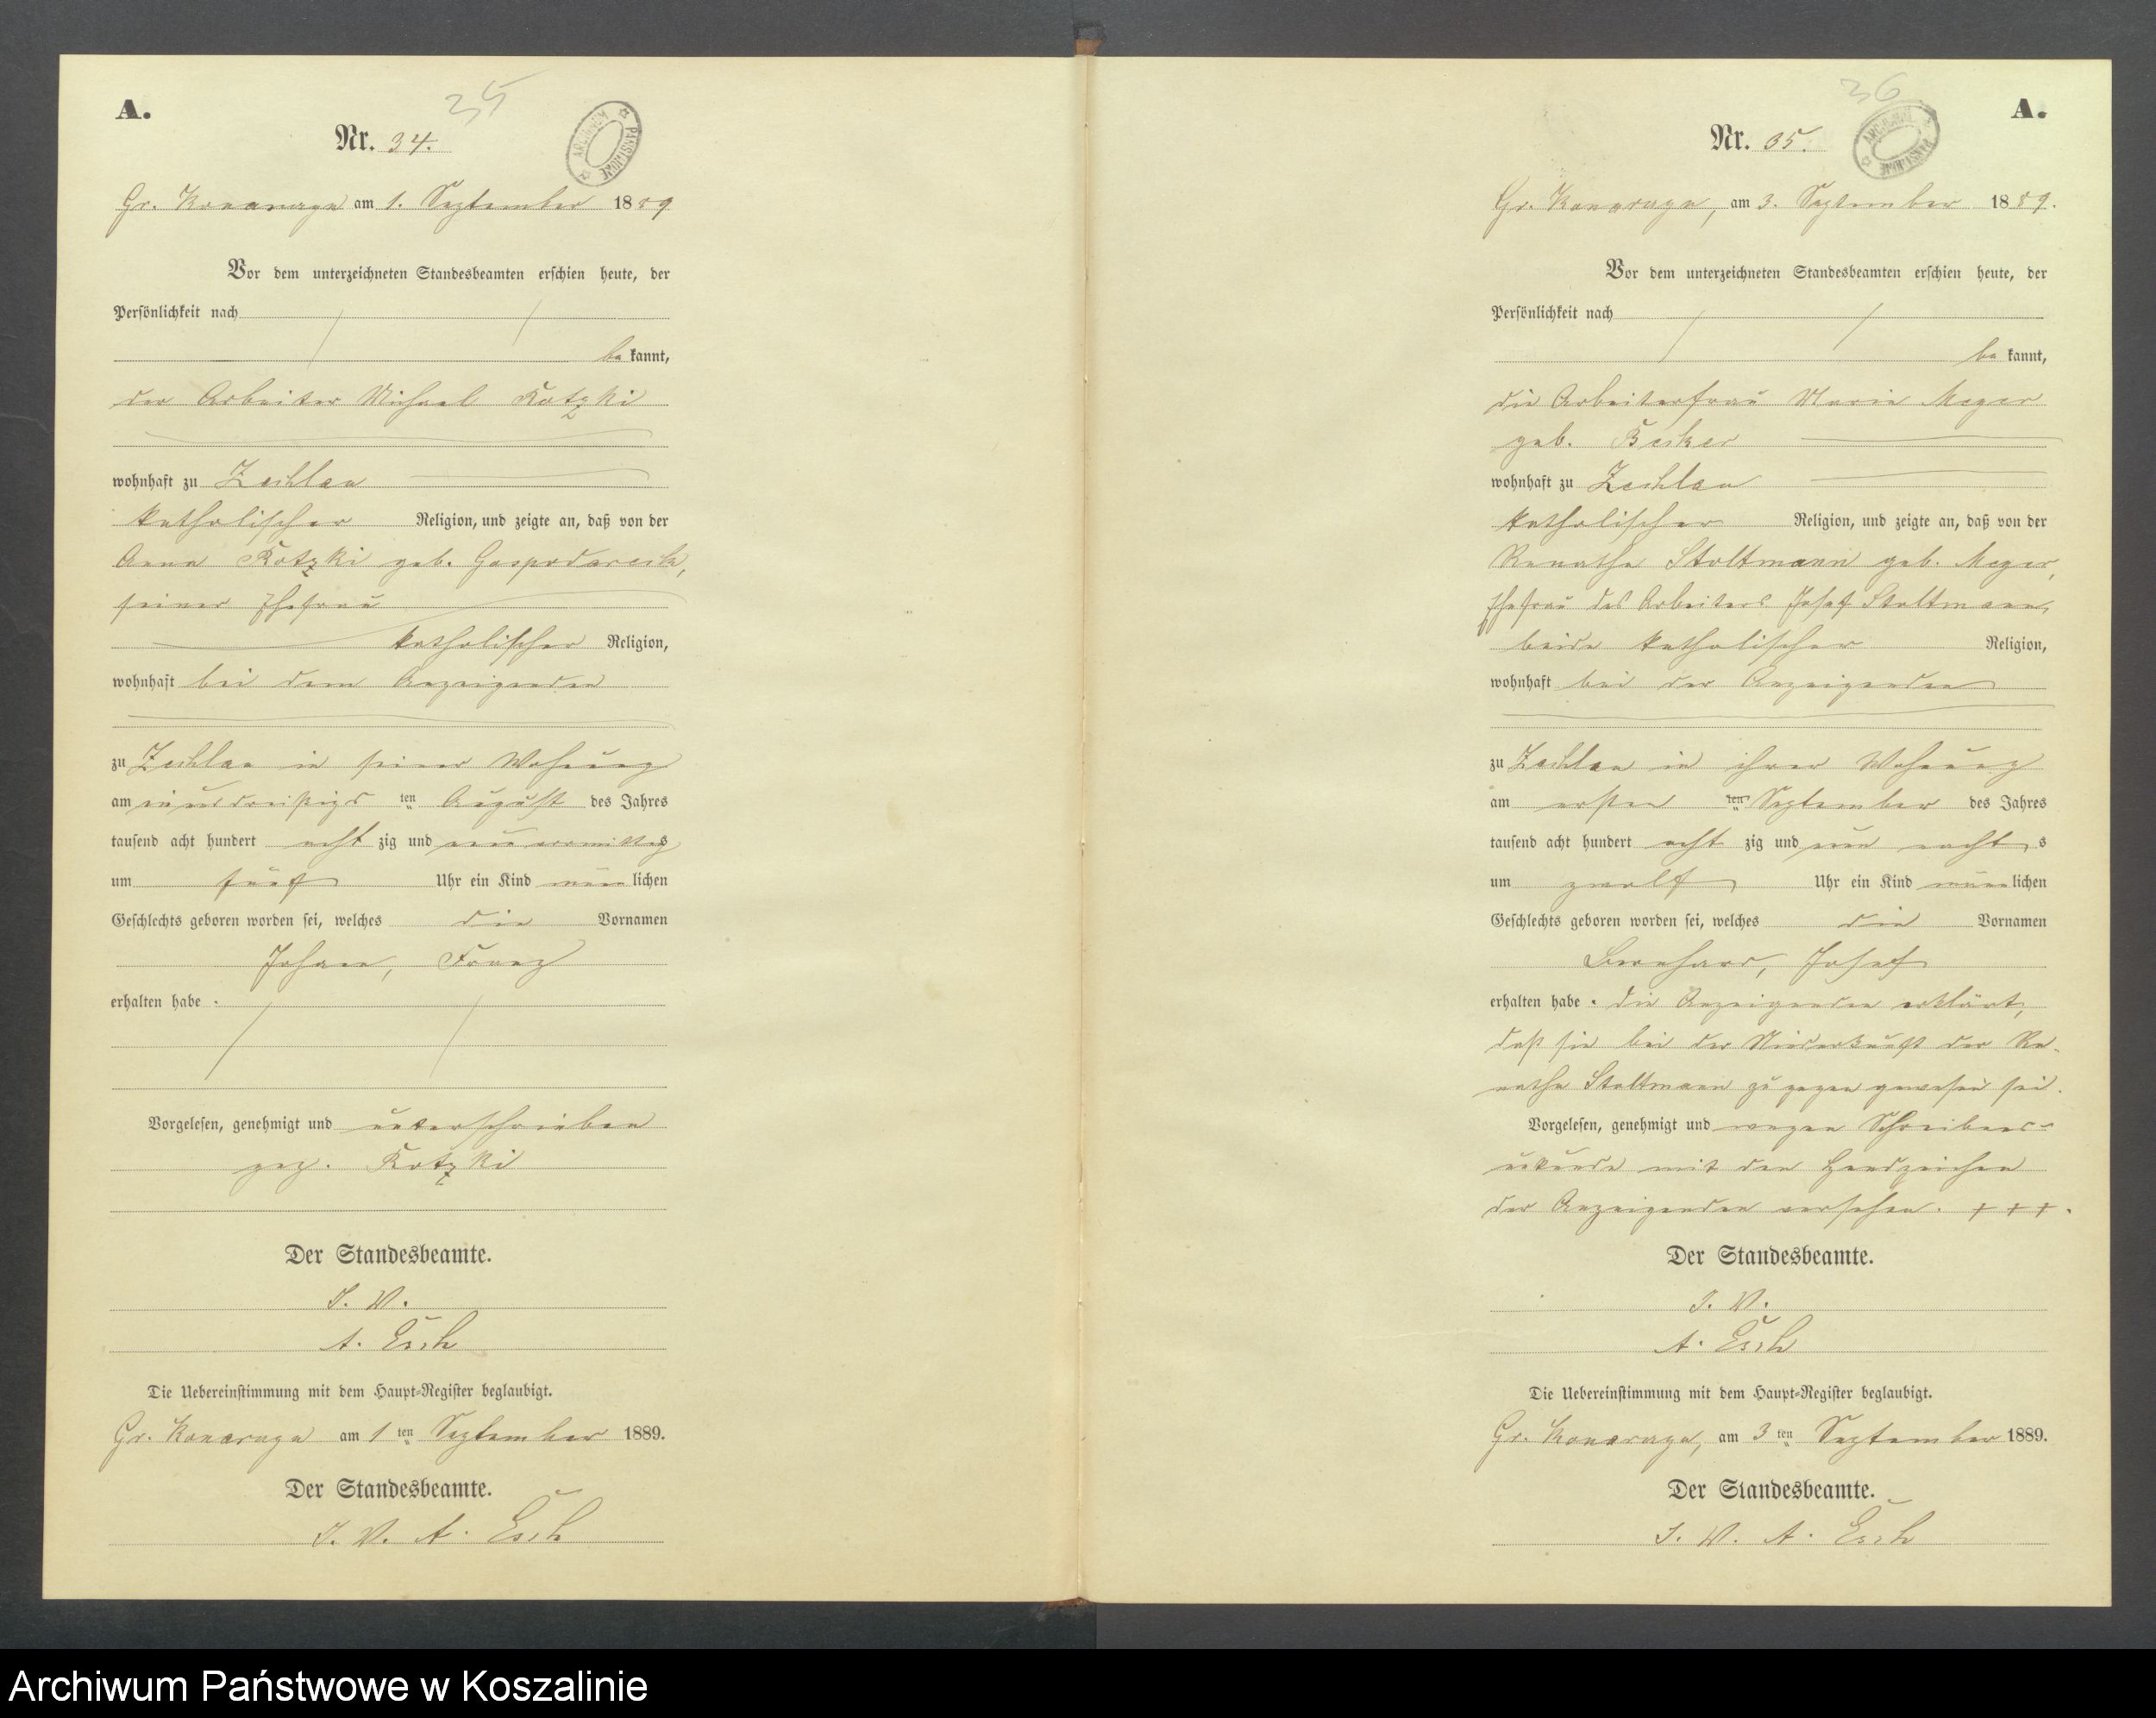 A.
35
Nr. 34.
ARCHIWUM PAŃSTWOWE
Gr. Konarczyn am 1. September 1889
Vor dem unterzeichneten Standesbeamten erschien heute, der
Persönlichkeit nach
be kannt,
der Arbeiter Michael Kotzki
wohnhaft zu Zechlau
katholischer Religion, und zeigte an, daß von der
Anna Kotzki geb.
seiner Ehefrau
katholischer Religion,
wohnhaft bei dem Anzeigenden
zu Zechlau in seiner Wohnung
am ten August des Jahres
tausend acht hundert acht zig und neun vormittags
um fünf Uhr ein Kind männlichen
Geschlechts geboren worden sei, welches die Vornamen
Johann, Franz
erhalten habe.
Vorgelesen, genehmigt und unterschrieben
gez. Kotzki
Der Standesbeamte.
I. V.
A. Esch
Die Uebereinstimmung mit dem Haupt-Register beglaubigt.
Gr. Konarczyn am 1 ten September 1889.
Der Standesbeamte.
I. V. A. Esch
36
A.
Nr. 35.
ARCHIWUM PAŃSTWOWE
Gr. Konarczyn, am 3. September 1889.
Vor dem unterzeichneten Standesbeamten erschien heute, der
Persönlichkeit nach
be kannt,
die Arbeiterfrau Marie Meger
geb.
wohnhaft zu Zechlau
katholischer Religion, und zeigte an, daß von der
Renathe Stoltmann geb. Meger,
Ehefrau des Arbeiters Josef Stoltmann,
beide katholischer Religion,
wohnhaft bei der Anzeigenden
zu Zechlau in ihrer Wohnung
am ersten ten September des Jahres
tausend acht hundert acht zig und neun nachts
um zwölf Uhr ein Kind männlichen
Geschlechts geboren worden sei, welches die Vornamen
Bernhard, Josef
erhalten habe. Die Anzeigenden erklärt,
daß sie bei der Niederkunft der Re-
nathe Stoltmann zugegen gewesen sei.
Vorgelesen, genehmigt und wegen Schreibens-
unkunde mit den Handzeichen
der Anzeigenden versehen. + + + .
Der Standesbeamte.
I. V.
A. Esch
Die Uebereinstimmung mit dem Haupt-Register beglaubigt.
Gr. Konarczyn, am 3 ten September 1889.
Der Standesbeamte.
I. V. A. Esch
Archiwum Państwowe w Koszalinie